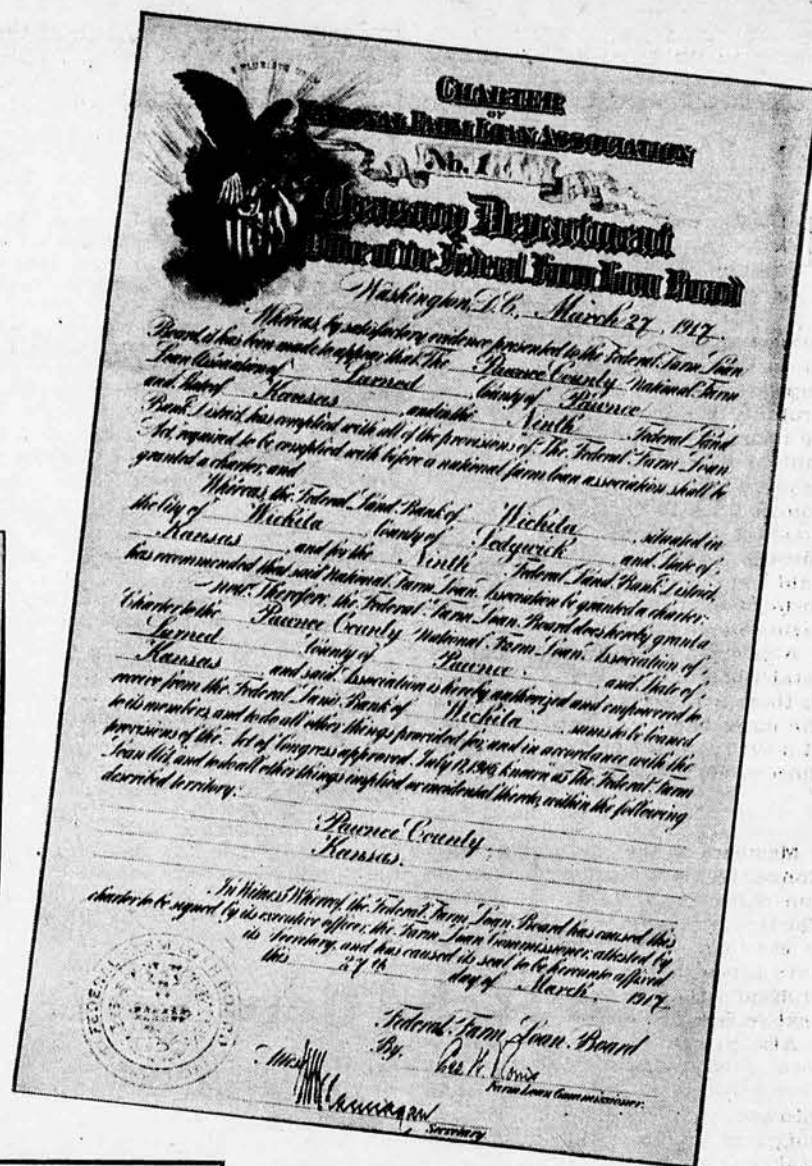 E PLURIBUS UNUM
CHARTER
OF
NATIONAL FARM LOAN ASSOCIATION
No. 1
Treasury Department
Office of the Federal Farm Loan Board
Washington, D.C., March 27, 1917.
Whereas, by satisfactory evidence presented to the Federal Farm Loan
Board, it has been made to appear that The Pawnee County National Farm
Loan Association of Larned County of Pawnee
and State of Kansas and in the Ninth Federal Land
Bank District has complied with all of the provisions of The Federal Farm Loan
Act, required to be complied with before a national farm loan association shall be
granted a charter; and
Whereas, the Federal Land Bank of Wichita, situated in
the City of Wichita County of Sedgwick and State of
Kansas and for the Ninth Federal Land Bank District,
has recommended that said National Farm Loan Association be granted a charter;
now, Therefore, the Federal Farm Loan Board does hereby grant a
Charter to the Pawnee County National Farm Loan Association of
Larned County of Pawnee. and State of
Kansas and said Association is hereby authorized and empowered to
receive from the Federal Land Bank of Wichita sums to be loaned
to its members, and to do all other things provided for, and in accordance with the
provisions of the Act of Congress approved July 17, 1916, known as The Federal Farm
Loan Act, and to do all other things implied or incidental thereto, within the following
described territory:
Pawnee County,
Kansas.
In Witness Whereof, the Federal Farm Loan Board has caused this
charter to be signed by its executive officer, the Farm Loan Commissioner, attested by
its Secretary, and has caused its seal to be hereunto affixed
this 27th day of March, 1917.
Federal Farm Loan Board
By,
Farm Loan Commissioner.
Attest
Secretary
FEDERAL FARM LOAN BOARD